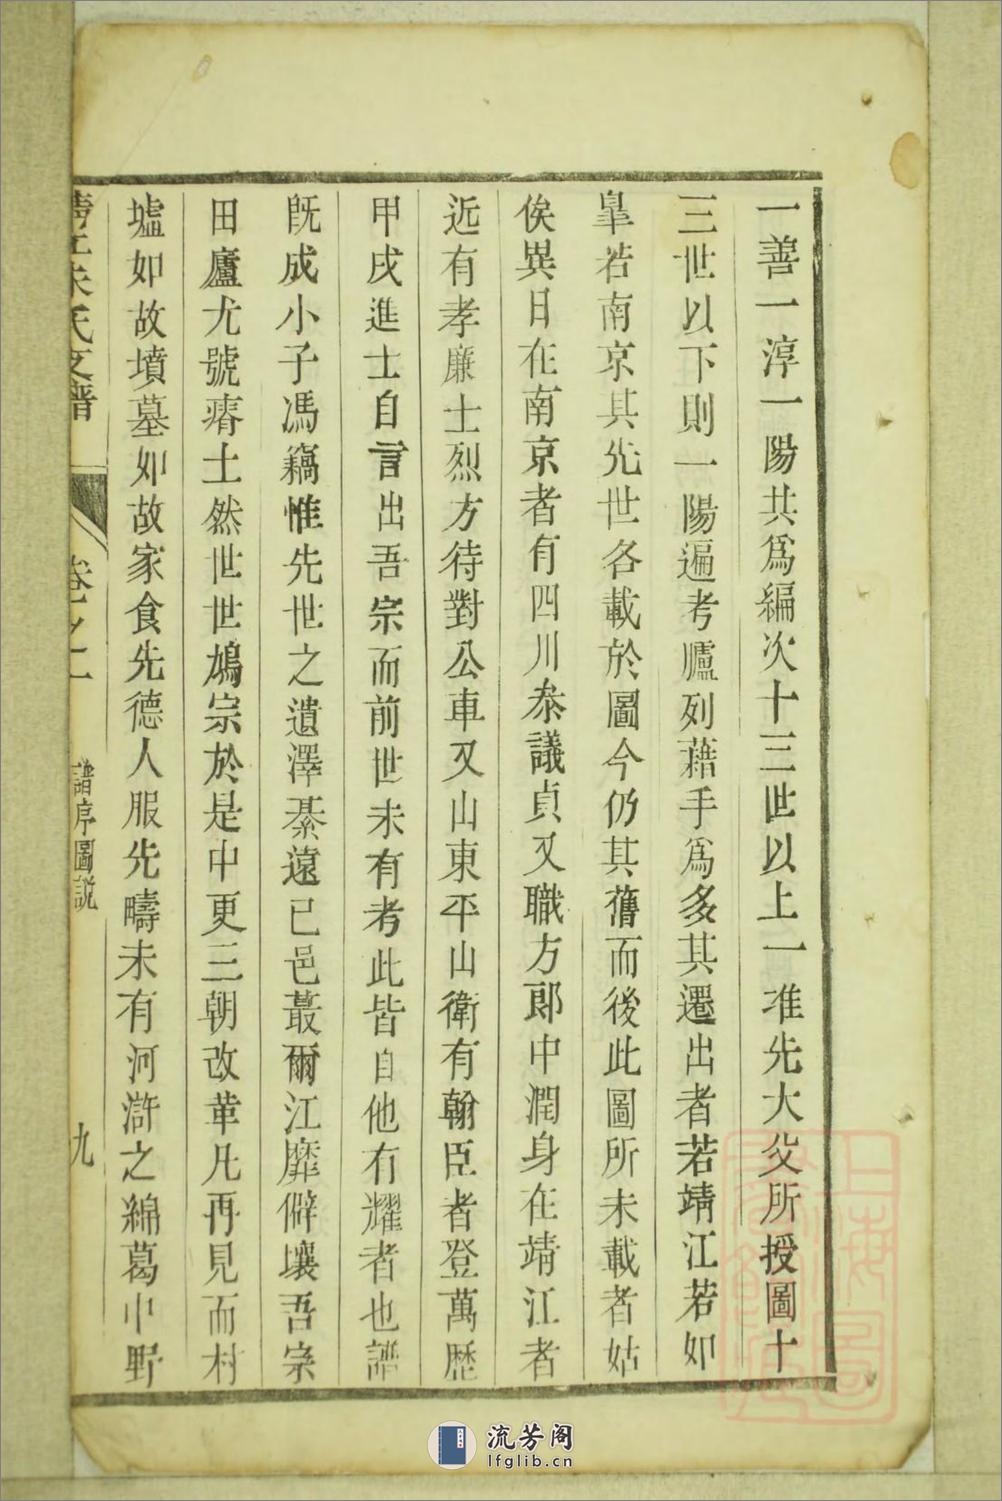 一善一淳一陽共爲編次十三世以上一准先大父所授圖十
三世以下則一陽遍考臚列藉手爲多其遷出者若靖江若如
皐若南京其先世各載於圖今仍其舊而後此圖所未載者姑
俟異日在南京者有四川叅議貞又職方郎中潤身在靖江者
近有孝廉士烈方待對公車又山東平山衛有翰臣者登萬歷
甲戌進士自言出吾宗而前世未有考此皆自他有耀者也譜
旣成小子馮籒惟先世之遺澤綦遠已邑蕞爾江靡僻壤吾宗
田廬尤號瘠土然世世鳩宗於是中更三朝改革凡再見而村
墟如故墳墓如故家食先德人服先疇未有河滸之綿葛中野
朱氏支譜
卷之
譜序圖説
九
上海圖
流芳阁
lfglib.cn